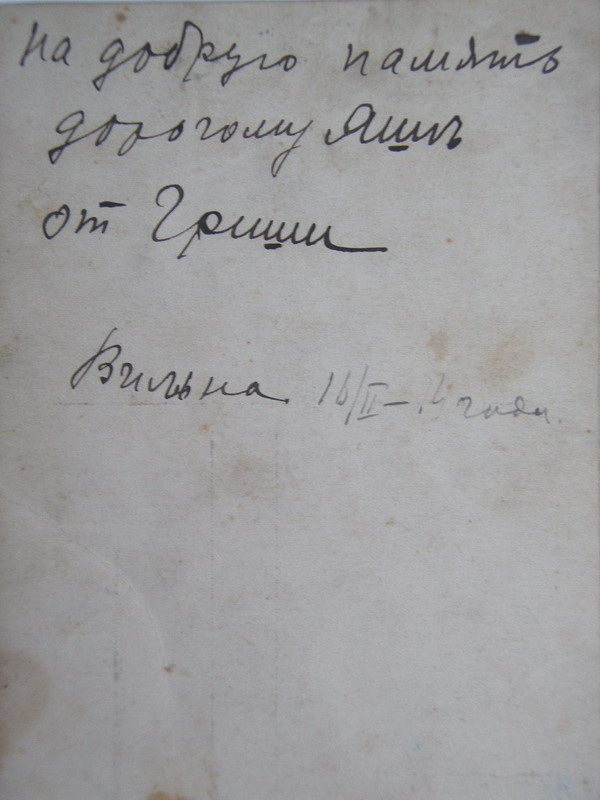 на добрую память
дорогому Яшѣ
от Гриши
Вильна. 16/II – года.